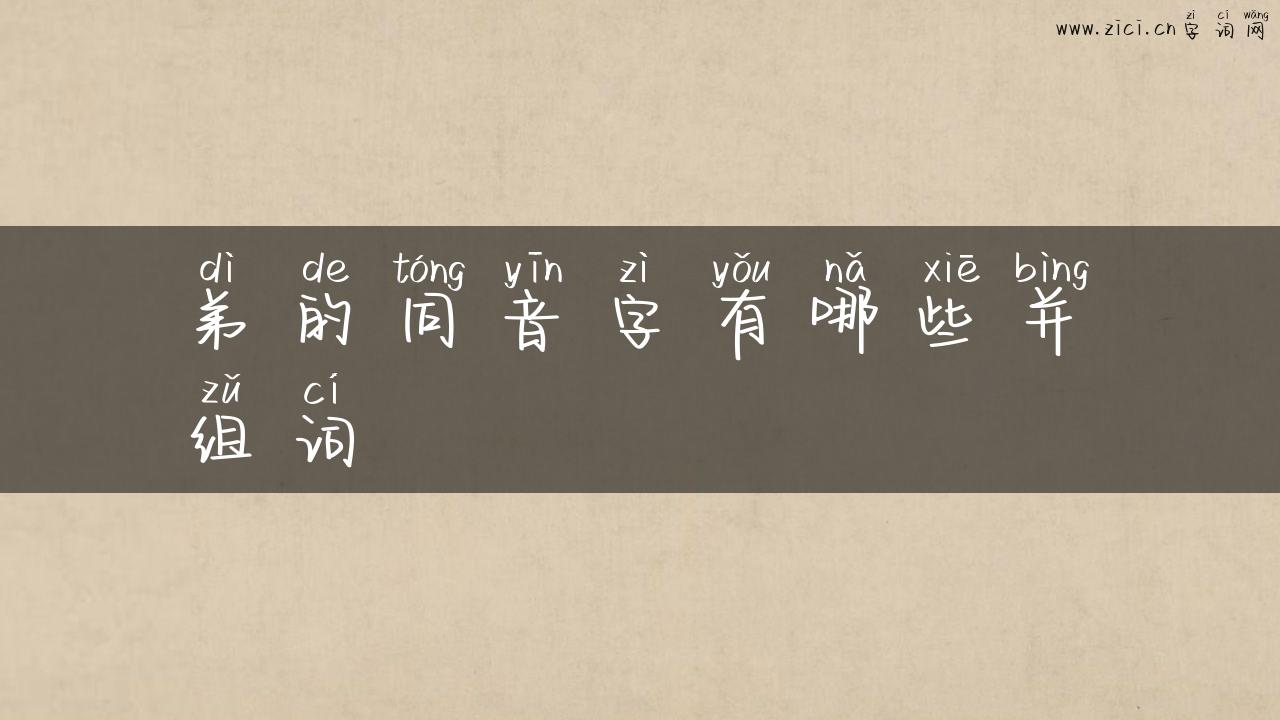 zì cí wǎng
www.zici.cn 字词网
dì de tóng yīn zì yǒu nǎ xiē bìng
弟的同音字有哪些并
zǔ cí
组词